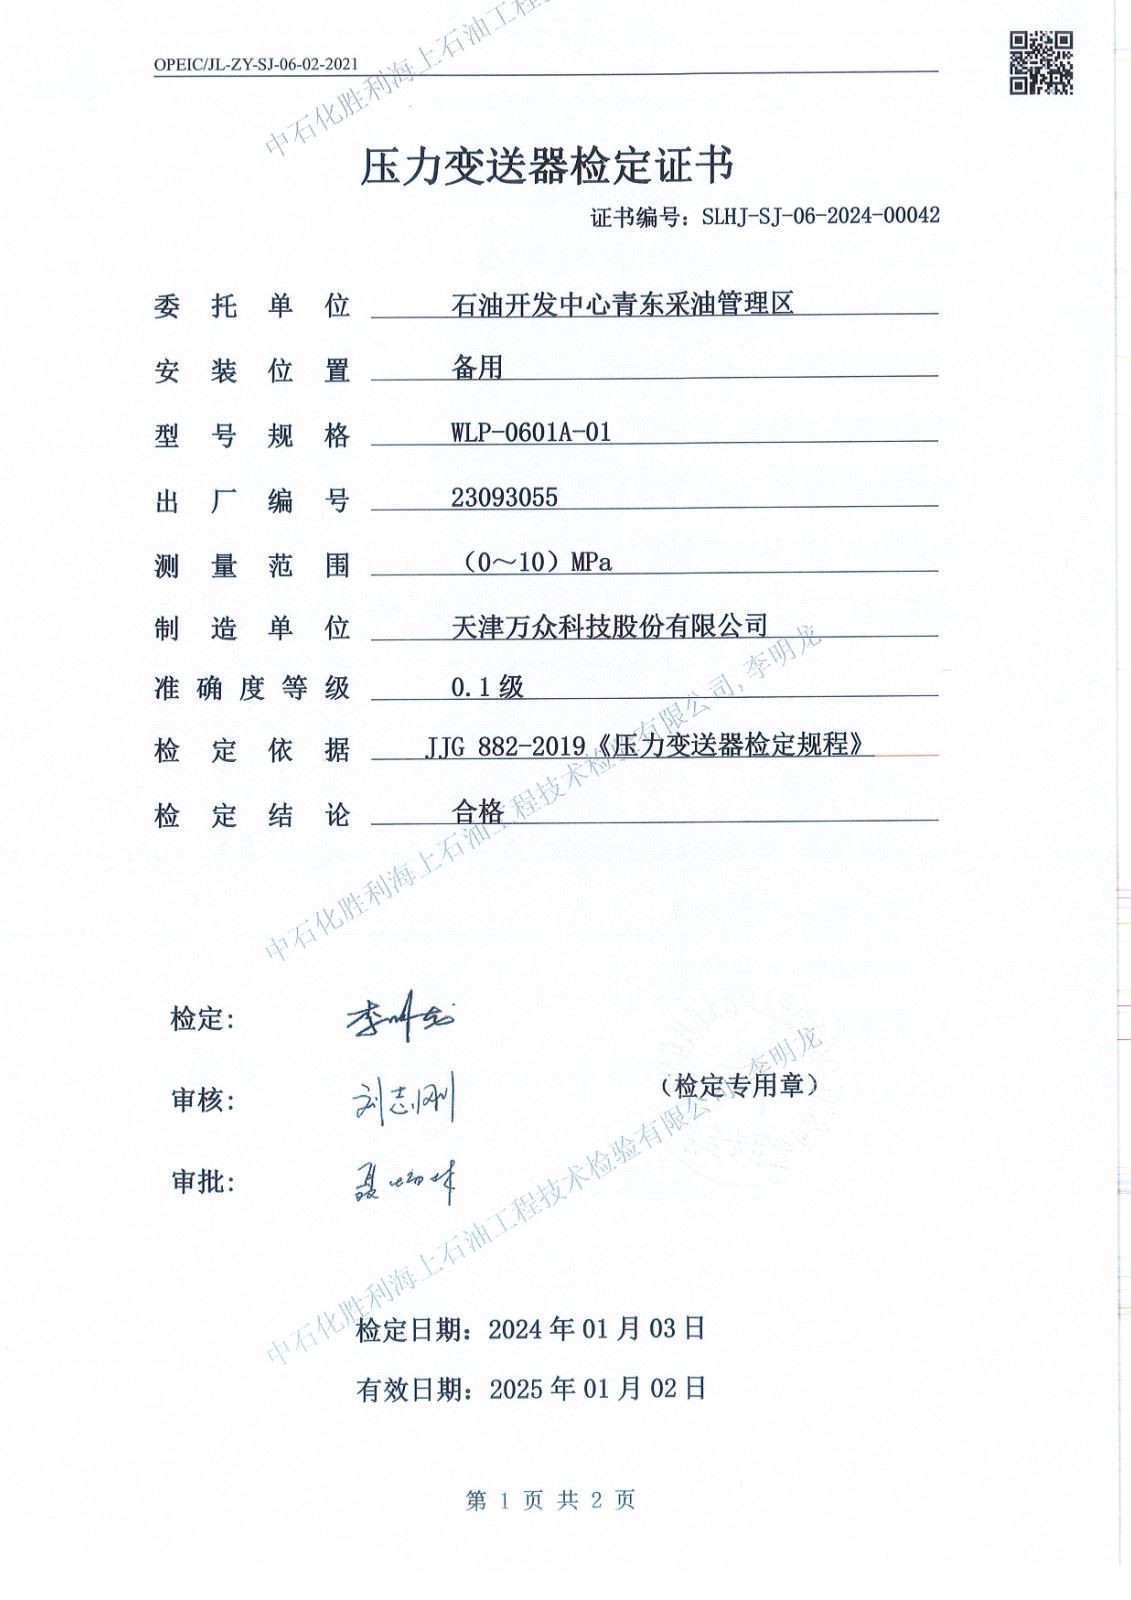 OPEIC/JL-ZY-SJ-06-02-2021
中石化胜利海上石油工程
压力变送器检定证书
证书编号：SLHJ-SJ-06-2024-00042
委托单位 石油开发中心青东采油管理区
安装位置 备用
型号规格 WLP-0601A-01
出厂编号 23093055
测量范围 （0～10）MPa
制造单位 天津万众科技股份有限公司
准确度等级 0.1级
检定依据 JJG 882-2019《压力变送器检定规程》
检定结论 合格
中石化胜利海上石油工程技术检验有限公司，李明龙
检定： 李明龙
审核： 刘志刚
（检定专用章）
审批：
中石化胜利海上石油工程技术检验有限公司，李明龙
检定日期：2024年01月03日
有效日期：2025年01月02日
第 1 页 共 2 页